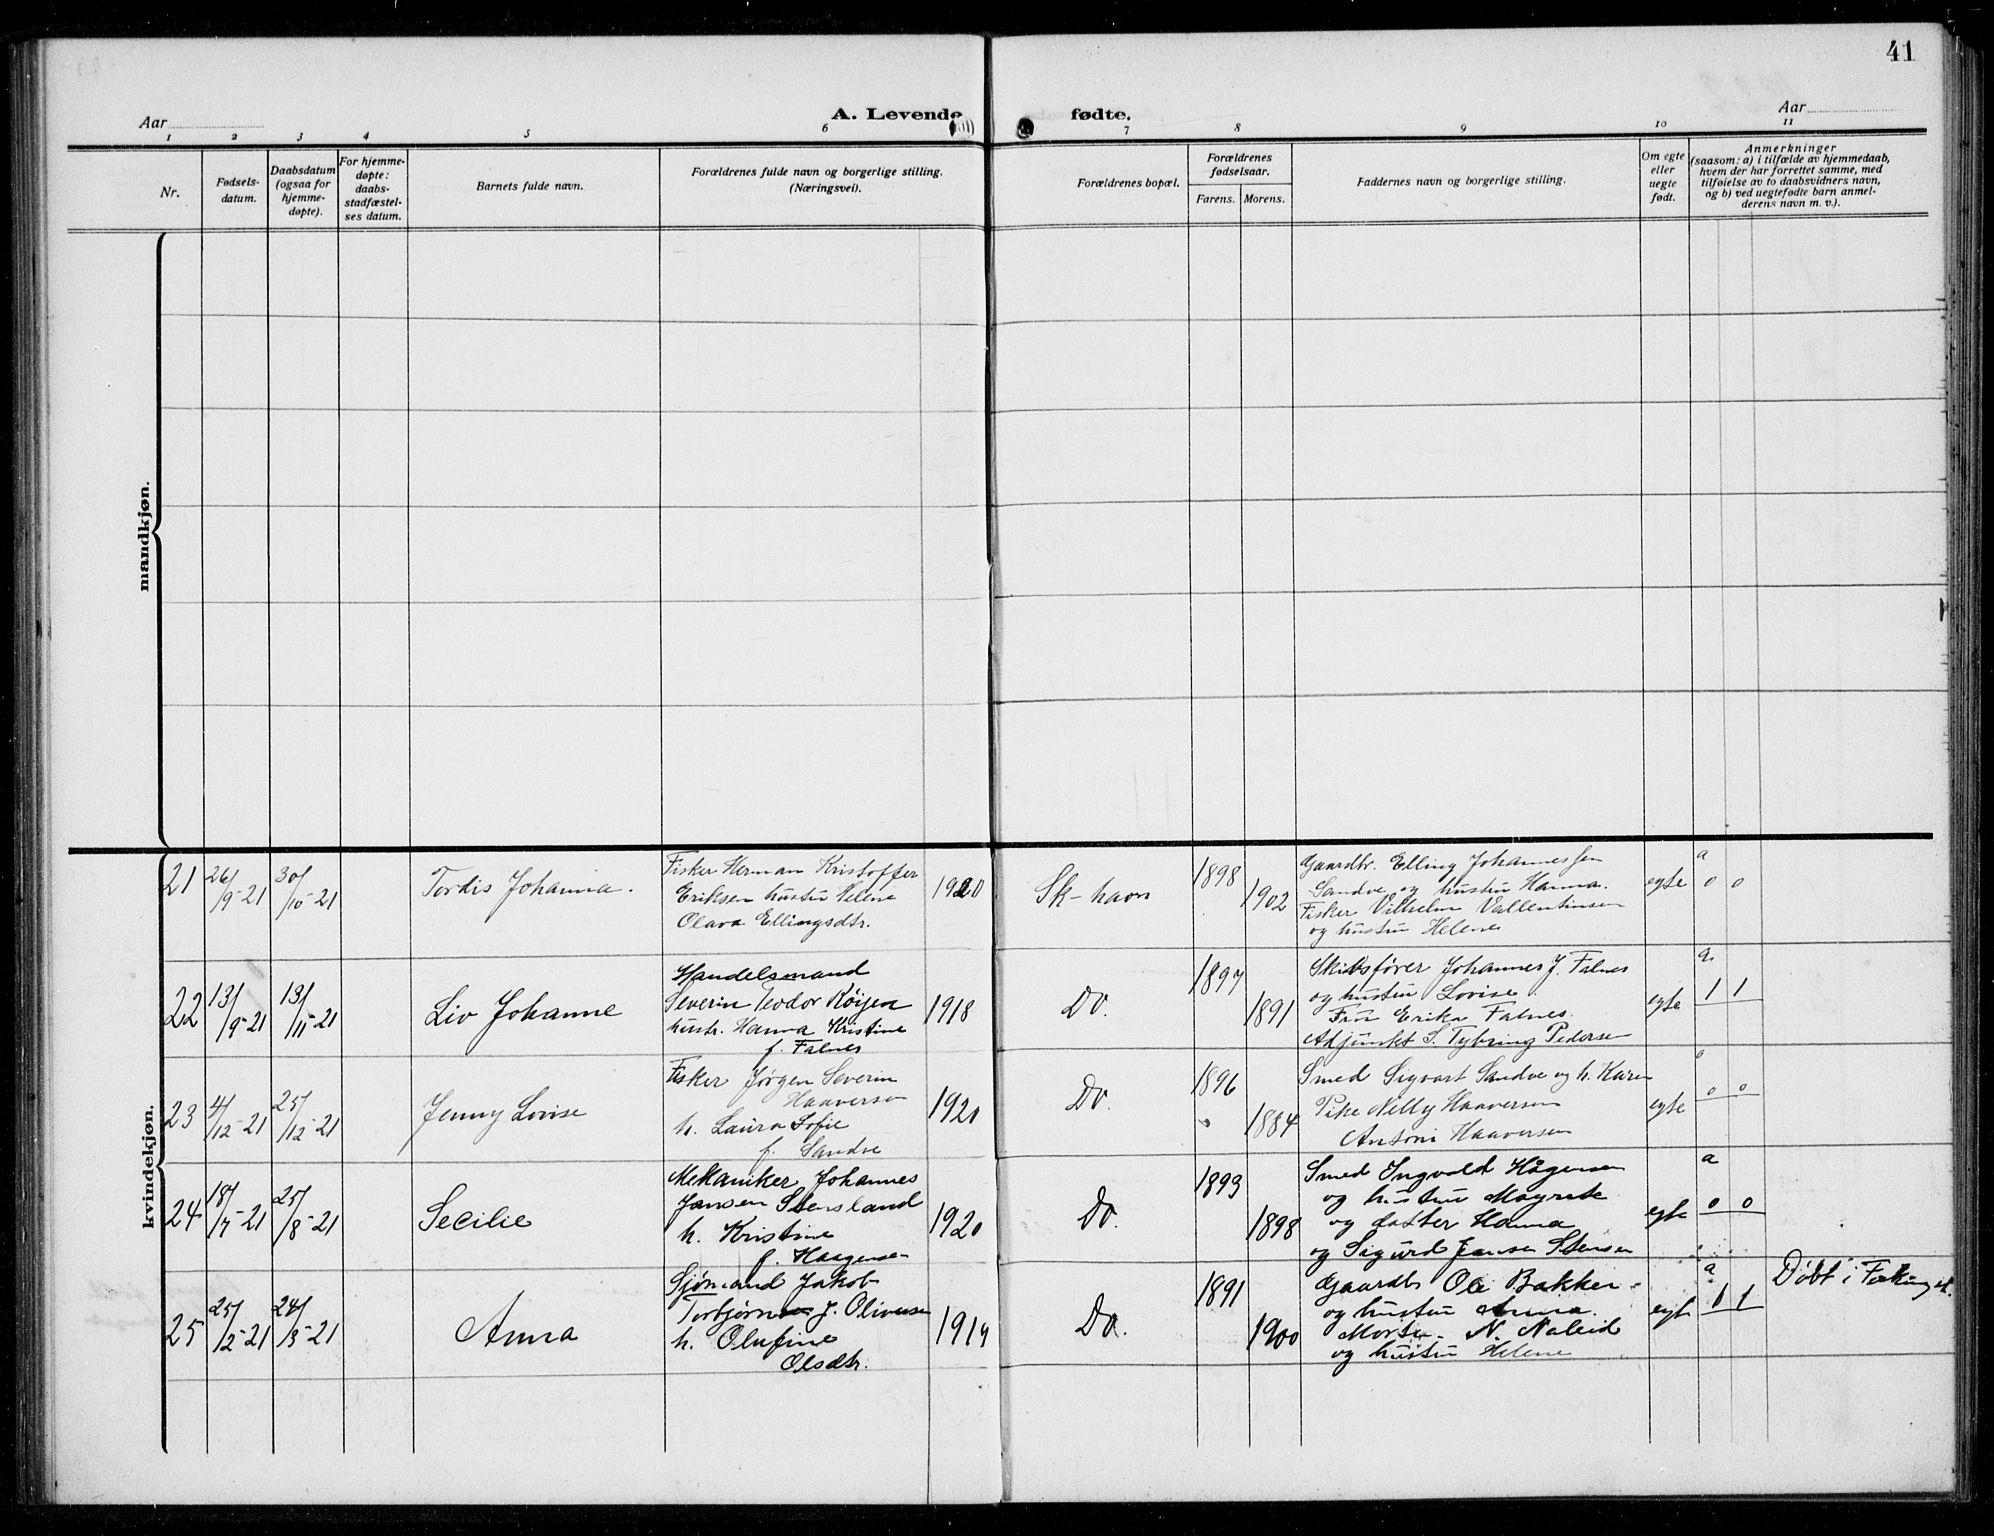 41
Aar
A. Levende fødte.
Aar
1 2 3 4 5 6 7 8 9 10 11
Nr.
Fødsels-
datum.
Daabsdatum
(ogsaa for
hjemme-
døpte).
For hjemme-
døpte:
daabs-
stadfæstel-
ses datum.
Barnets fulde navn.
Forældrenes fulde navn og borgerlige stilling.
(Næringsvei).
Forældrenes bopæl.
Forældrenes
fødselsaar.
Farens. Morens.
Faddernes navn og borgerlige stilling.
Om egte
eller
uegte
født.
Anmerkninger
(saasom: a) i tilfælde av hjemmedaab,
hvem der har forrettet samme, med
tilføielse av to daabsvidners navn,
og b) ved uegtefødte barn anmel-
derens navn m. v.).
mandkjøn.
kvindekjøn.
21 26/9-21 30/10-21 Tordis Johanna.
Fisker Herman Kristoffer
Eriksen hustru Helene
Olava Ellingsdtr.
1920 Sk-havn 1898 1902
Gaardbr. Elling Johannessen
Sandve og hustru Hanna.
Fisker Vilhelm Vallentinsen
og hustru Helene
egte a 0 0
22 13/9-21 13/11-21 Liv Johanne
Handelsmand
Severin Teodor Køijen
hustr. Hanna Kristine
f. Falnes
1918 Do. 1897 1891
Skibsfører Johannes J. Falnes
og hustru Lovise.
Fru Erika Falnes.
Adjunkt S. Tybring Pedersen
egte a 1 1
23 4/12-21 25/12-21 Jenny Lovise
Fisker Jørgen Severin
Haaversen
h. Laura Sofie
f. Sandve
1920 Do. 1896 1884
Smed Sigvart Sandve og h. Karen
Pike Nelly Haaversen
Antoni Haaversen
egte 0 0
24 18/7-21 25/8-21 Secilie
Mekaniker Johannes
Jansen Stensland
h. Kristine
f. Haagensen
1920 Do. 1893 1898
Smed Ingvald Hågensen
og hustru Magrete
og datter Hanna
og Sigurd Jansen Stensen
egte a 0 0
25 25/2-21 24/3-21 Anna
Sjømand Jakob
Torbjørn J. Oliversen
h. Olufine
Olsdtr.
1919 Do. 1891 1900
Gaardb Ole Bakken
og hustru Anna.
Morten N. Naleid
og hustru Helene
egte a 1 1
Døbt i